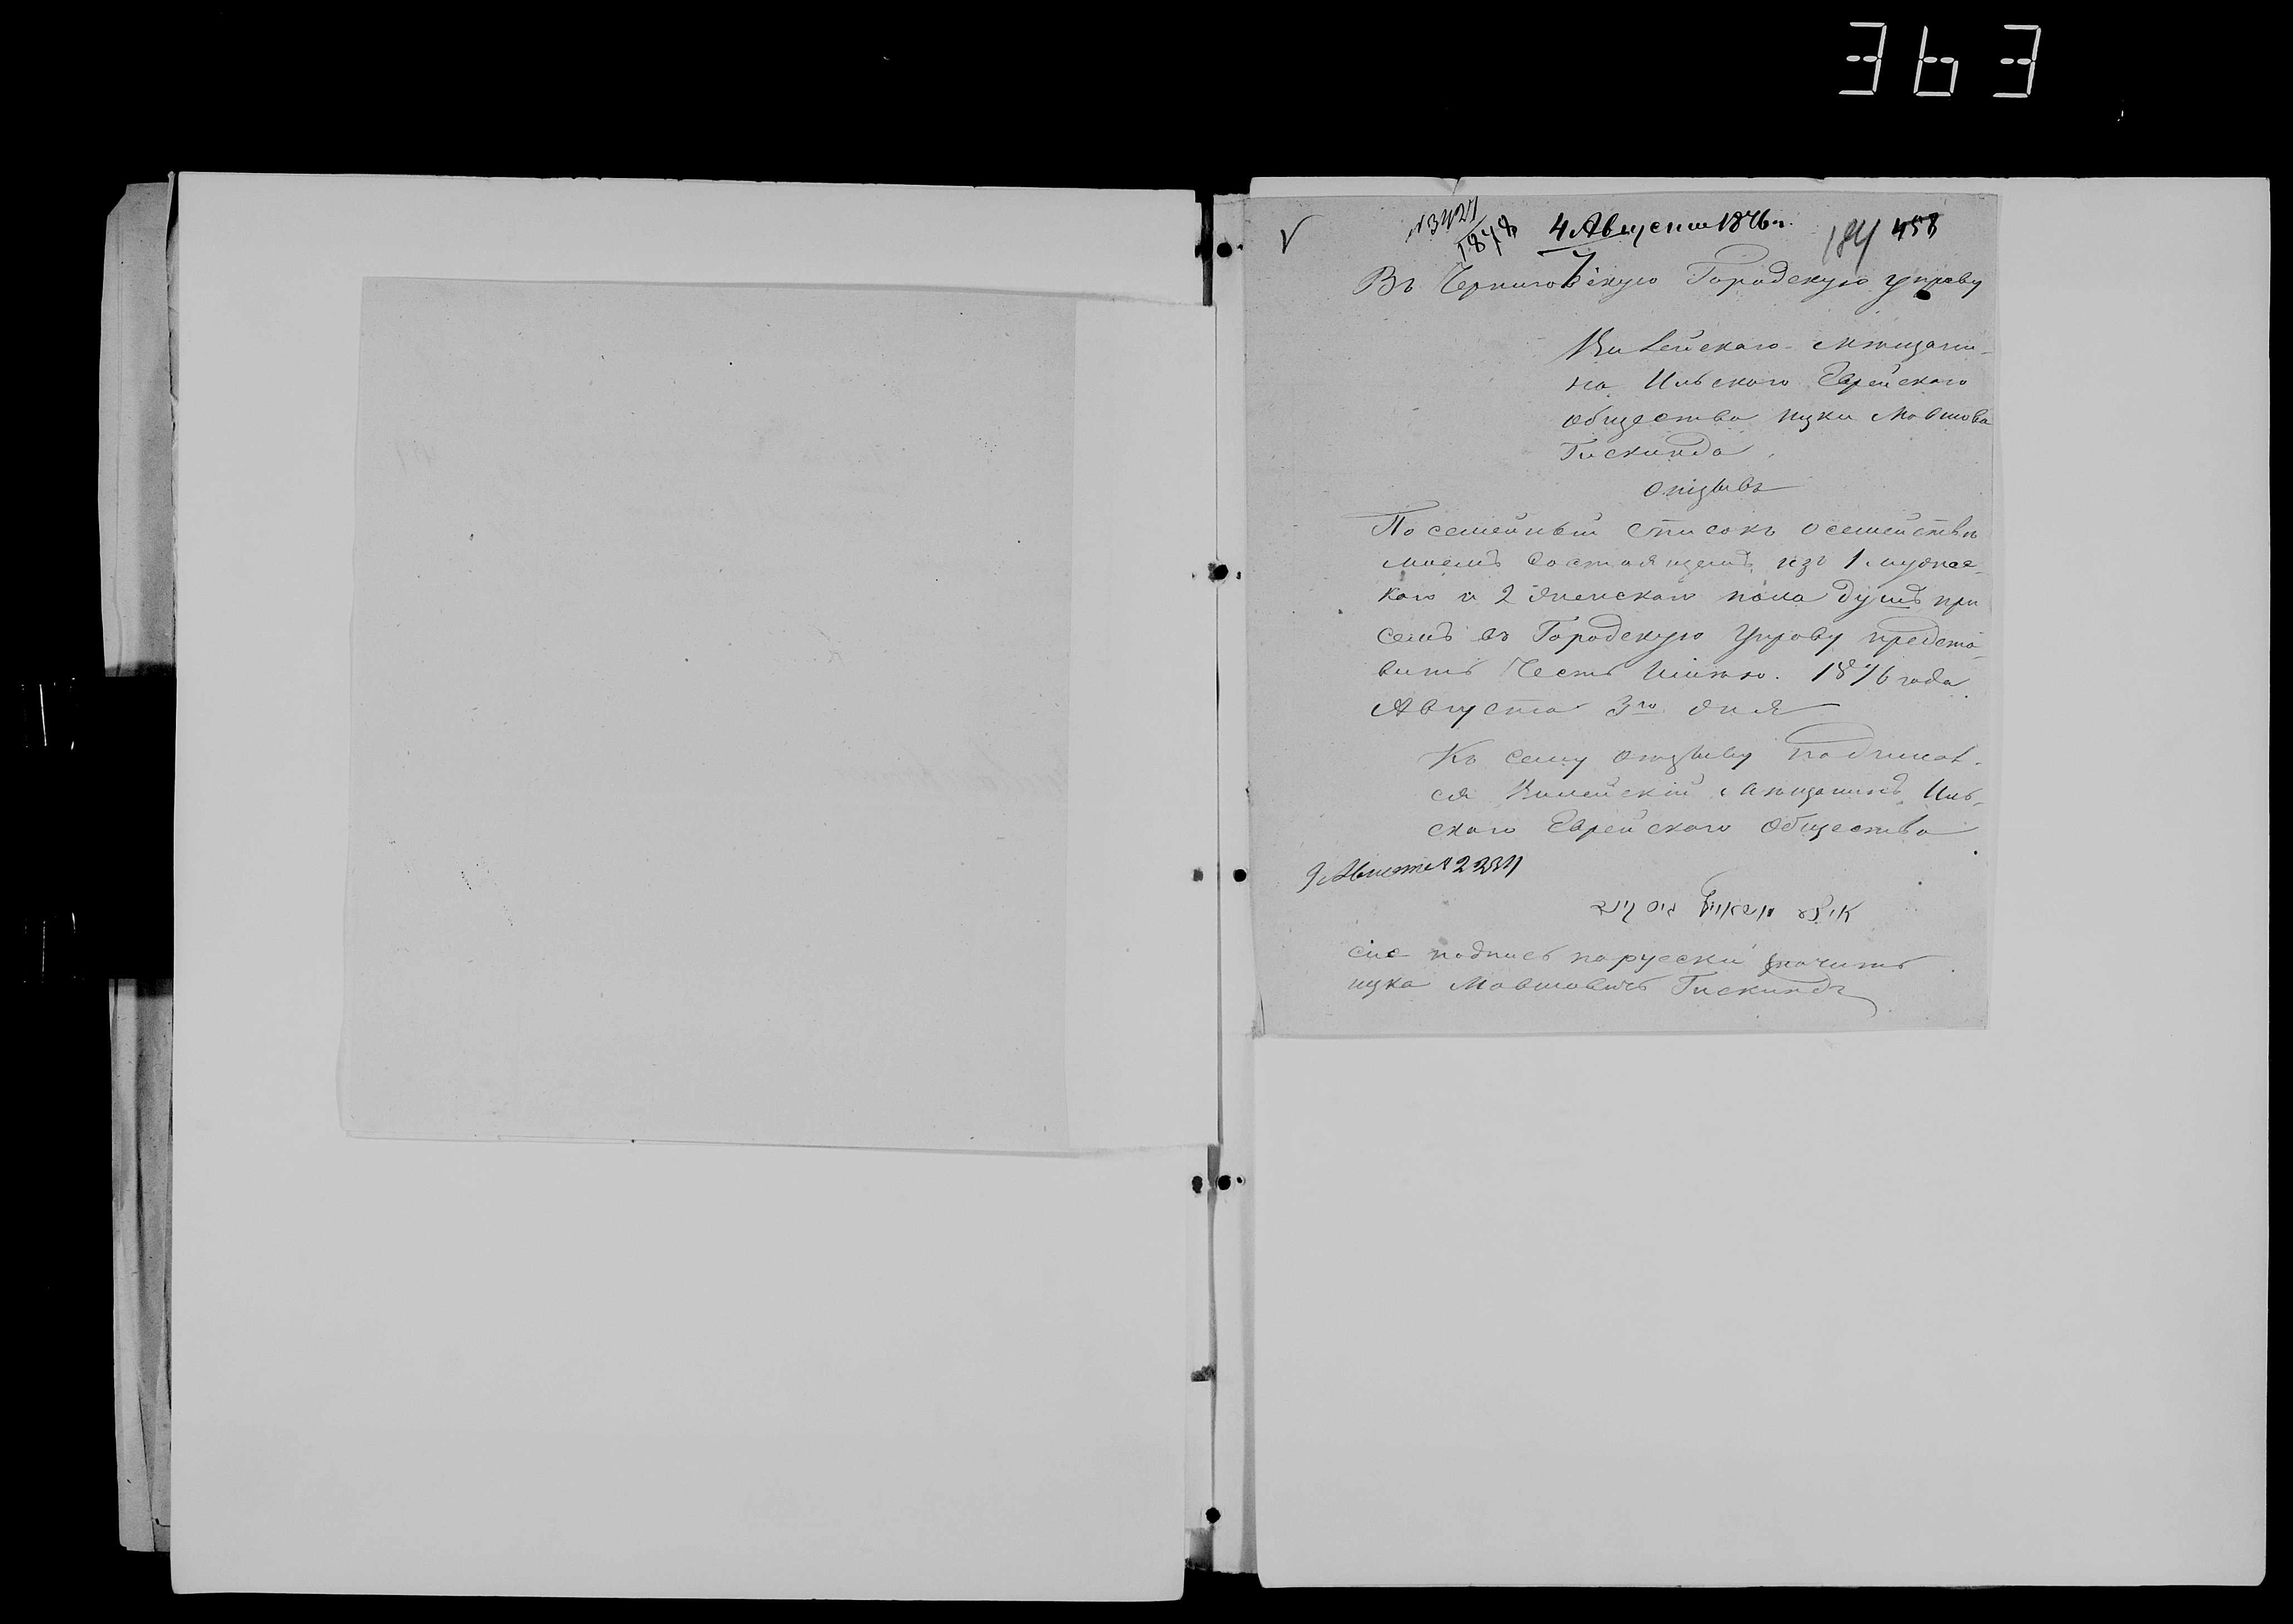 363
4 Августа 1876 г.
184 458
Въ Черниговскую Городскую управу
Вилейскаго мѣщани-
на Ильского Еврейского
общества ицки Мовшова
Гискинда
отзывъ
По семейный списокъ о семействѣ
моемъ состоящемъ изъ 1 мужес-
кого и 2 женского пола душъ при
семъ въ Городскую Управу предста-
вить Честь Имѣю. 1876 года
Августа 3го дня
Къ сему отзыву подписал-
ся Вилейскій мѣщанинъ Иль-
ского Еврейского Общества
9 Августа № 2234
сіе подпись по руски значитъ
ицка Мовшовичъ Гискиндъ